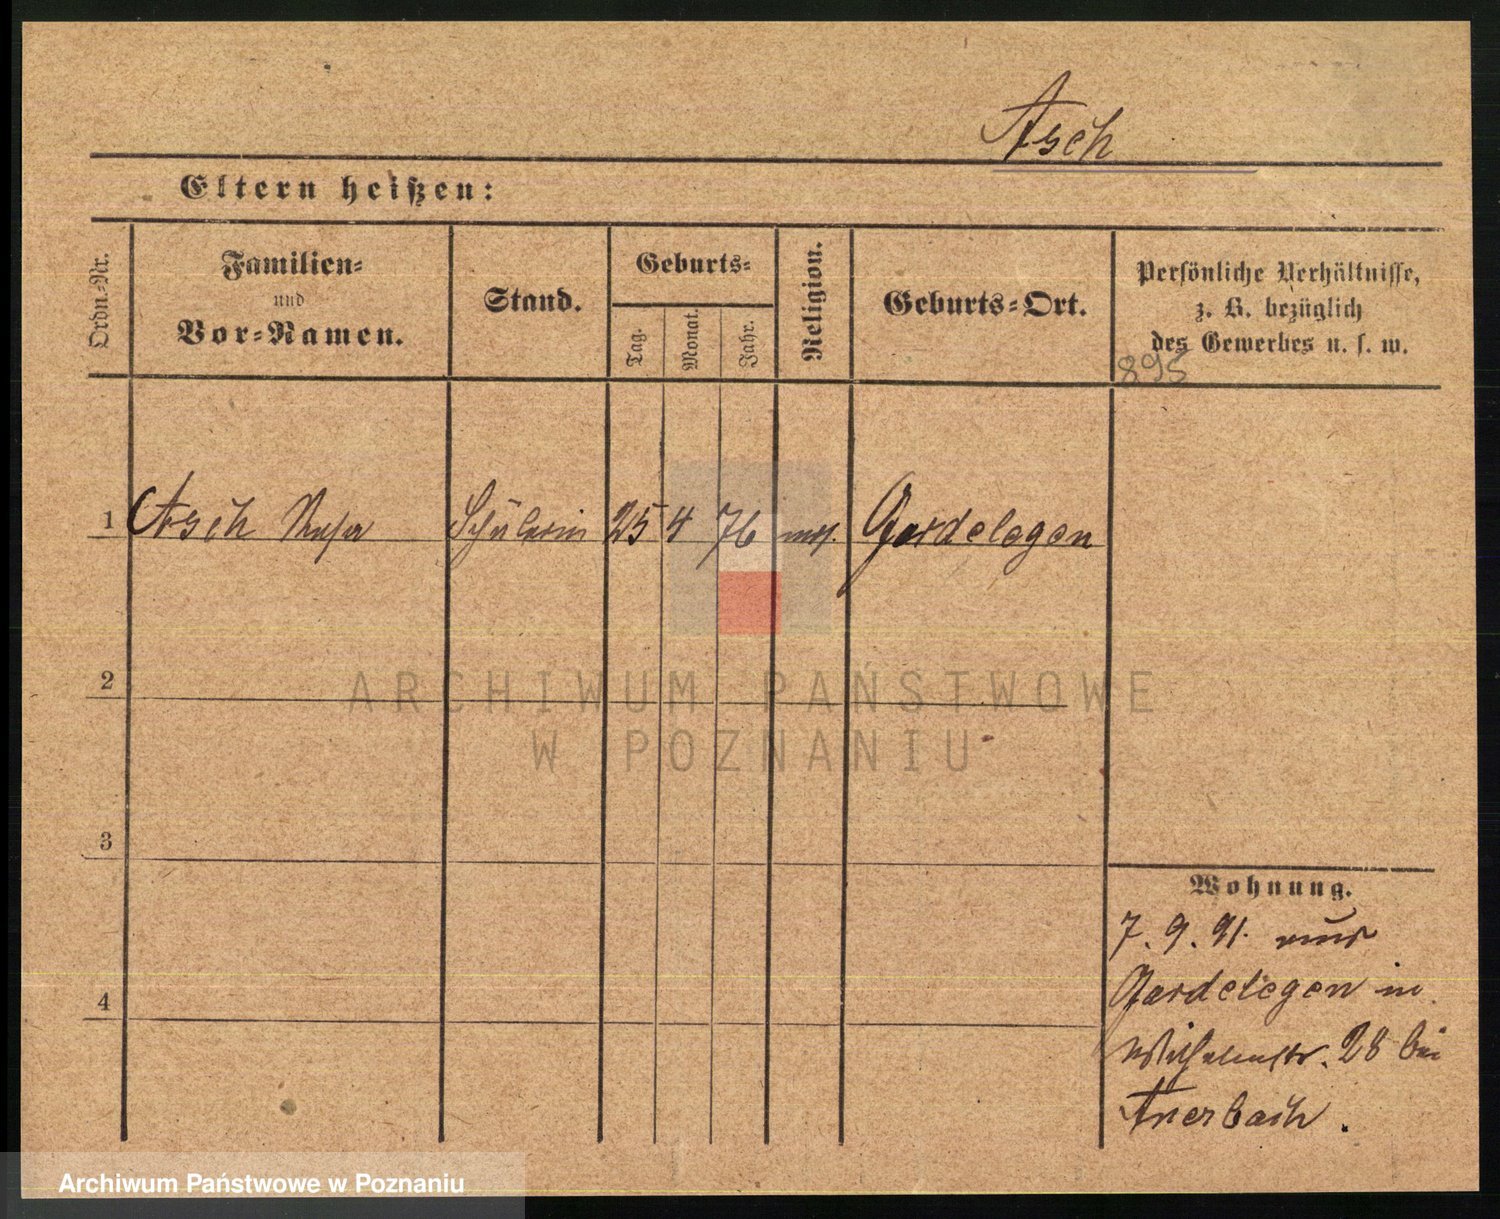 Asch
Eltern heißen:
Ordn.-Nr.
Familien-
und
Vor-Namen.
Stand.
Geburts-
Tag.
Monat.
Jahr.
Religion.
Geburts-Ort.
Persönliche Verhältnisse,
z. B. bezüglich
des Gewerbes u. s. w.
895
1 Asch Rosa Schülerin 25 4 76 mos. Gardelegen
2
3
4
Wohnung.
7. 9. 91. aus
Gardelegen in
Wilhelmstr. 28 bei
Auerbach.
ARCHIWUM PAŃSTWOWE
W POZNANIU
Archiwum Państwowe w Poznaniu